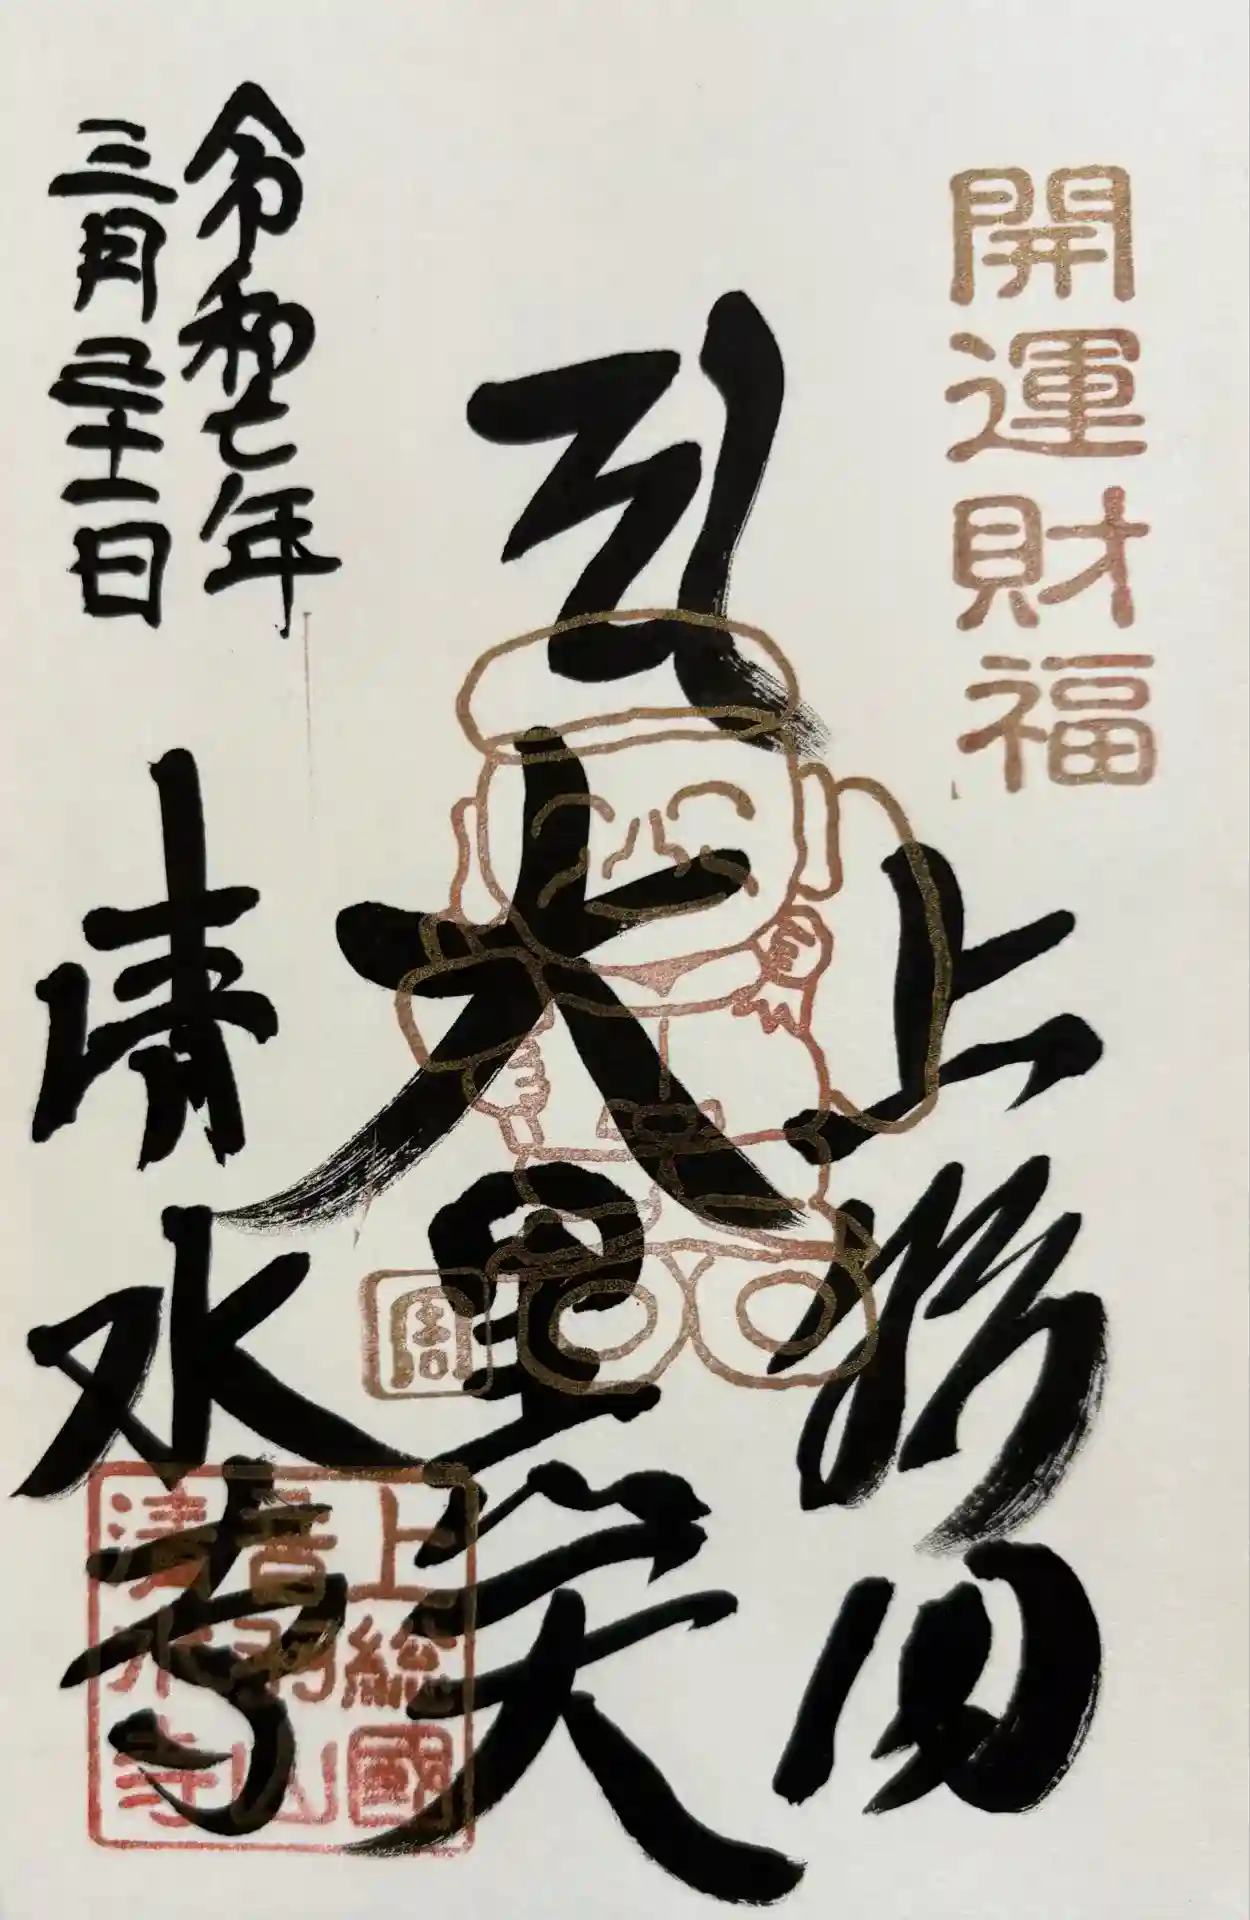 開運財福
上総国
大黒天
清水寺
令和七年
三月十一日
周
上総國
音羽山
清水寺